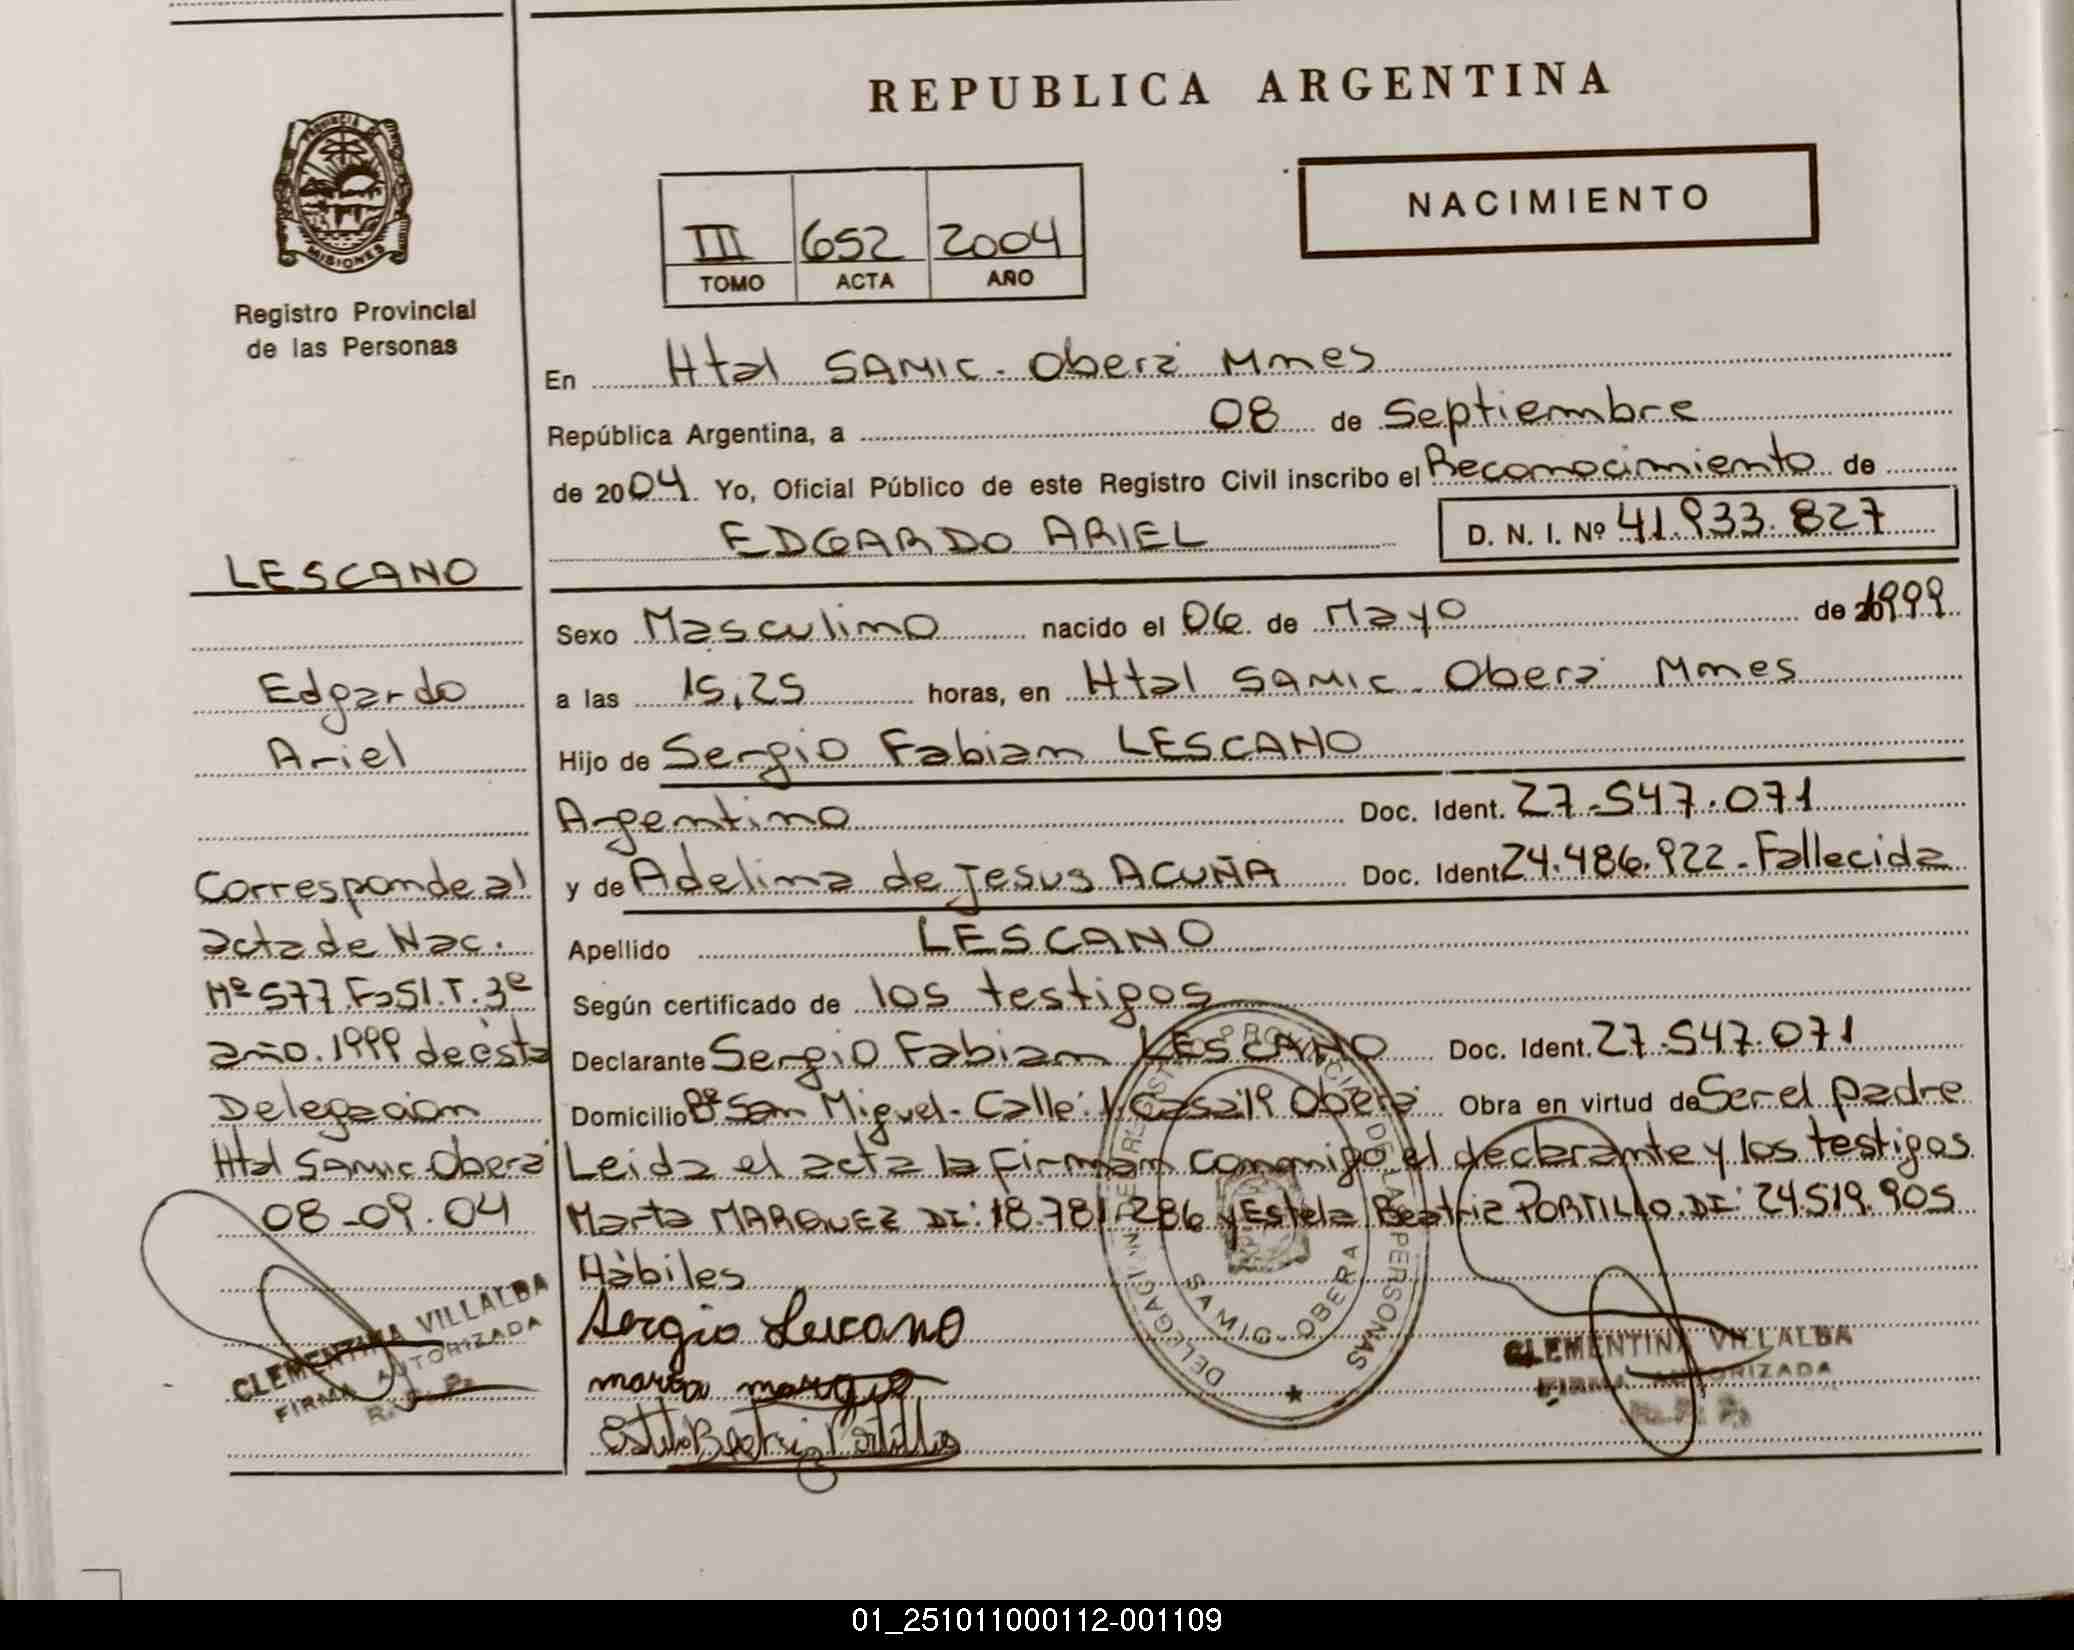 REPUBLICA ARGENTINA
NACIMIENTO
PROVINCIA DE
MISIONES
III 652 2004
TOMO ACTA AÑO
Registro Provincial
de las Personas
En Htal SAMIC. Oberá Mnes
República Argentina, a 08 de Septiembre
de 2004. Yo, Oficial Público de este Registro Civil inscribo el Reconocimiento de
EDGARDO ARIEL D. N. I. Nº 41.933.827
LESCANO
Sexo Masculino nacido el 06 de Mayo de 1999
a las 15,25 horas, en Htal SAMIC. Oberá Mnes
Hijo de Sergio Fabian LESCANO
Argentino Doc. Ident. 27.547.071
y de Adelina de Jesus ACUÑA Doc. Ident 24.486.922 - Fallecida
Apellido LESCANO
Según certificado de los testigos
Declarante Sergio Fabian LESCANO Doc. Ident. 27.547.071
Domicilio Bº San Miguel - Calle: Casa 19 Oberá Obra en virtud de Ser el padre
Leida el acta la firman conmigo el declarante y los testigos
Marta MARQUEZ DI: 18.781.286 y Estela Beatriz PORTILLO. DI: 24.519.905
Hàbiles
Sergio Lescano
Estela Beatriz Portillo
Edgardo
Ariel
Corresponde al
acta de Nac.
Nº 577 Fº 51. T. 3º
año. 1999 de èsta
Delegacion
Htal SAMIC. Oberá
08-09.04
CLEMENTINA VILLALBA
FIRMA AUTORIZADA
R. P. P.
DELEGACION REGISTRO PROVINCIAL DE LAS PERSONAS
SAMIC - OBERA
CLEMENTINA VILLALBA
FIRMA AUTORIZADA
R. P. P.
01_251011000112-001109